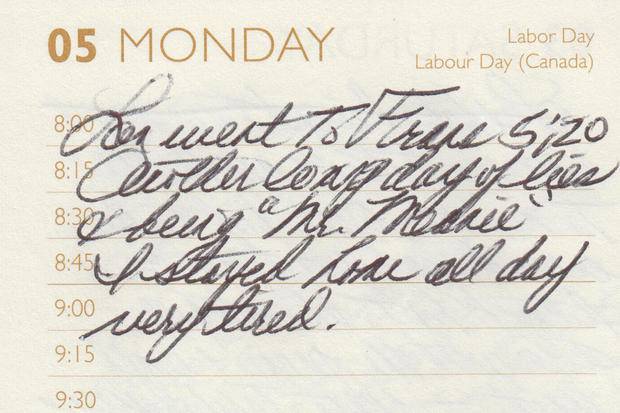 05 MONDAY
Labor Day
Labour Day (Canada)
8:00
Len went To Frans 5:20
8:15
Another long day of lies
8:30
& being "a Mr. Meanie"
8:45
I stayed home all day
9:00
very tired.
9:15
9:30